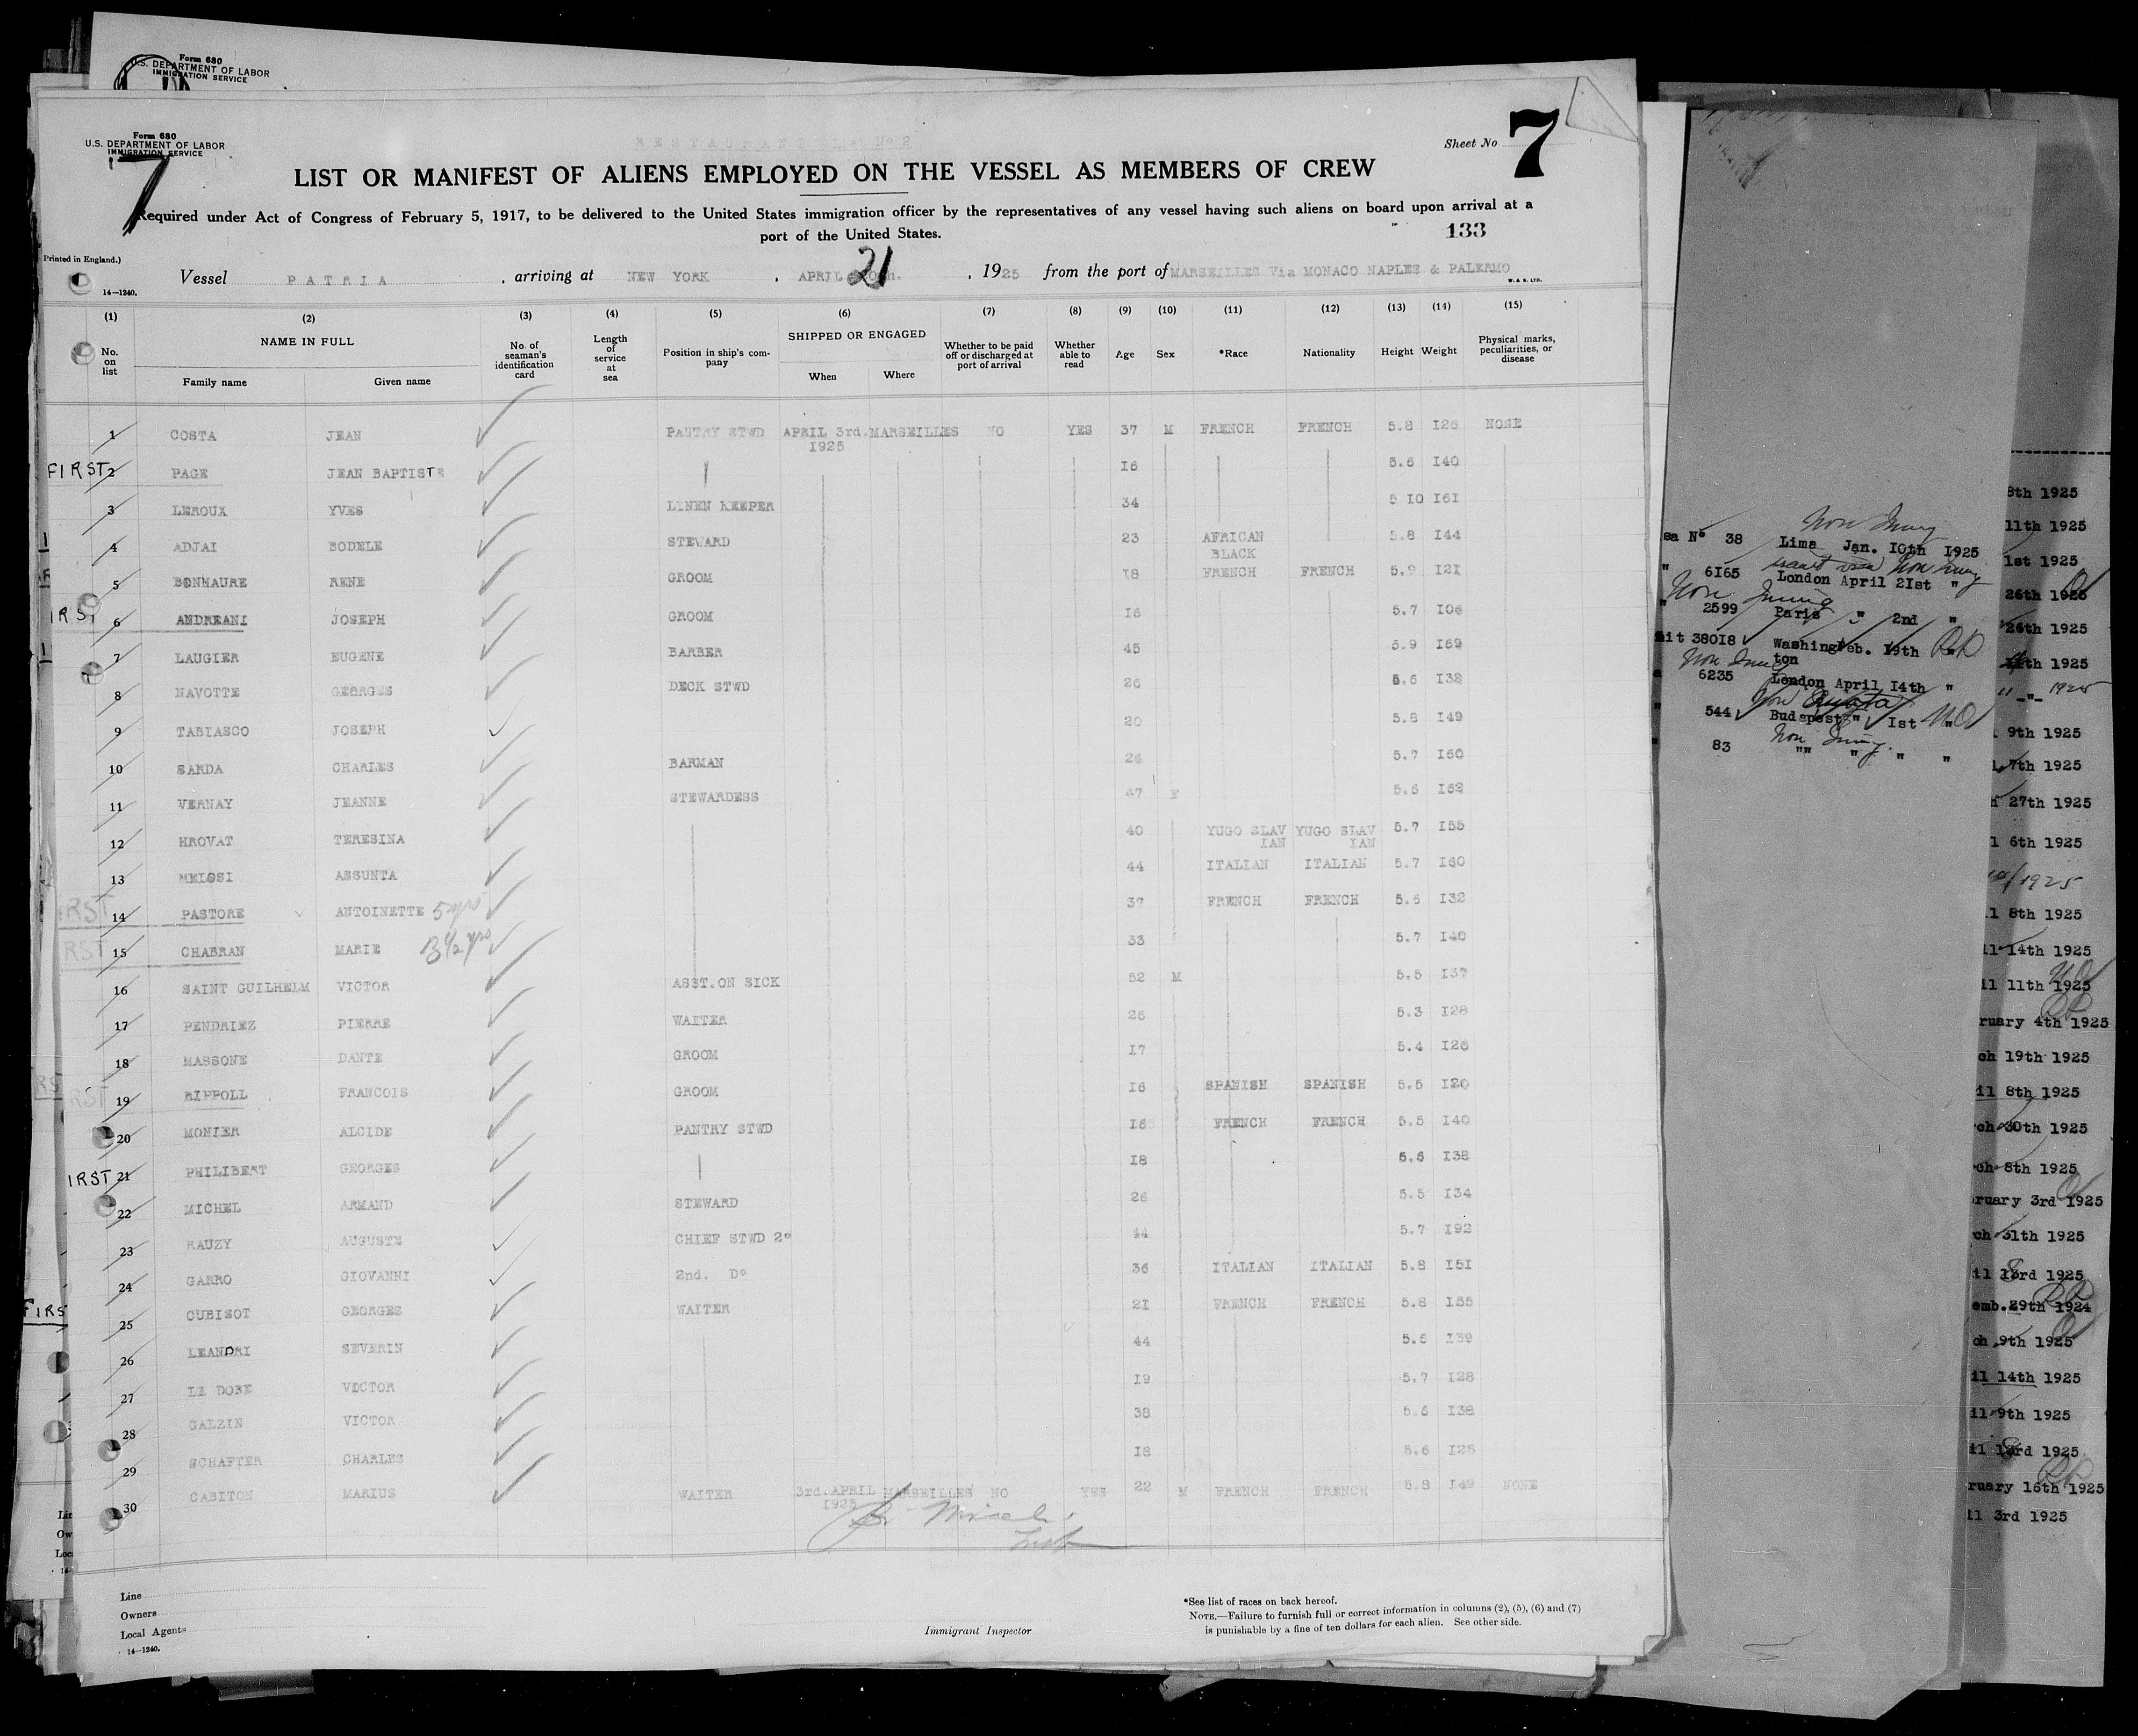 Form 680
U.S. DEPARTMENT OF LABOR
IMMIGRATION SERVICE
Form 680
U.S. DEPARTMENT OF LABOR
IMMIGRATION SERVICE
7
Sheet No 7
LIST OR MANIFEST OF ALIENS EMPLOYED ON THE VESSEL AS MEMBERS OF CREW
Required under Act of Congress of February 5, 1917, to be delivered to the United States immigration officer by the representatives of any vessel having such aliens on board upon arrival at a
port of the United States.
133
Printed in England.)
14—1240.
Vessel PATRIA , arriving at NEW YORK , APRIL 21 , 1925 from the port of MARSEILLES Via MONACO NAPLES & PALERMO
W. & S. LTD.
(1) (2) (3) (4) (5) (6) (7) (8) (9) (10) (11) (12) (13) (14) (15)
No. on list NAME IN FULL Family name Given name No. of seaman's identification card Length of service at sea Position in ship's company SHIPPED OR ENGAGED When Where Whether to be paid off or discharged at port of arrival Whether able to read Age Sex *Race Nationality Height Weight Physical marks, peculiarities, or disease
1 COSTA JEAN PANTRY STWD APRIL 3rd. 1925 MARSEILLES NO YES 37 M FRENCH FRENCH 5.8 I26 NONE
FIRST 2 PAGE JEAN BAPTISTE I6 5.6 I40
3 LEROUX YVES LINEN KEEPER 34 5 I0 I6I
4 ADJAI BODELE STEWARD 23 AFRICAN BLACK 5.8 I44
5 BONHAURE RENE GROOM I8 FRENCH FRENCH 5.9 I2I
IRST 6 ANDREANI JOSEPH GROOM I6 5.7 I06
7 LAUGIER EUGENE BARBER 45 5.9 I69
8 NAVOTTE GEORGES DECK STWD 26 5.6 I32
9 TABIASCO JOSEPH 20 5.8 I49
10 SARDA CHARLES BARMAN 26 5.7 I60
11 VERNAY JEANNE STEWARDESS 47 F 5.6 I62
12 HROVAT TERESINA 40 YUGO SLAVIAN YUGO SLAVIAN 5.7 I55
13 MELOSI ASSUNTA 44 ITALIAN ITALIAN 5.7 I60
IRST 14 PASTORE ANTOINETTE 5 yrs 37 FRENCH FRENCH 5.6 I32
RST 15 CHABRAN MARIE 3 1/2 yrs 33 5.7 I40
16 SAINT GUILHELM VICTOR ASST.ON SICK 52 M 5.5 I37
17 PENDRIEZ PIERRE WAITER 26 5.3 I28
18 MASSONE DANTE GROOM I7 5.4 I26
RST 19 RIPPOLL FRANCOIS GROOM I6 SPANISH SPANISH 5.5 I20
20 MONIER ALCIDE PANTRY STWD I6 FRENCH FRENCH 5.5 I40
IRST 21 PHILIBERT GEORGES I8 5.6 I38
22 MICHEL ARMAND STEWARD 26 5.5 I34
23 RAUZY AUGUSTE CHIEF STWD 2º 44 5.7 I92
24 GARRO GIOVANNI 2nd. Dº 36 ITALIAN ITALIAN 5.8 I5I
25 CUBIZOT GEORGES WAITER 2I FRENCH FRENCH 5.8 I55
26 LEANDRI SEVERIN 44 5.6 I39
27 LE DOBE VICTOR I9 5.7 I28
28 GALZIN VICTOR 38 5.6 I38
29 SCHAFTER CHARLES I8 5.6 I25
30 GABITON MARIUS WAITER 3rd.APRIL 1925 MARSEILLES NO YES 22 M FRENCH FRENCH 5.8 I49 NONE
Line
Owners
Local Agents
14—1240.
Immigrant Inspector
*See list of races on back hereof.
NOTE.—Failure to furnish full or correct information in columns (2), (5), (6) and (7)
is punishable by a fine of ten dollars for each alien. See other side.
FIRS
Non Immig
sa Nº 38 Lima Jan. I0th I925
" 6I65 London April 2Ist "
Non Immig
" 2599 Paris " 2nd "
38018 Washington Feb. 19th "
Non Immig
6235 London April I4th "
" 544 Budapest " Ist "
Non Immig.
" 83 "" " " "
8th 1925
11th 1925
1st 1925
26th 1925
26th 1925
th 1925
" -"- 1925
9th 1925
7th 1925
27th 1925
6th 1925
1925
l 8th 1925
14th 1925
il 11th 1925
ruary 4th 1925
ch 19th 1925
il 8th 1925
ch 30th 1925
ch 8th 1925
ruary 3rd 1925
ch 31th 1925
il rd 1925
emb.29th 1924
ch 9th 1925
il 14th 1925
il 9th 1925
il rd 1925
ruary 16th 1925
il 3rd 1925